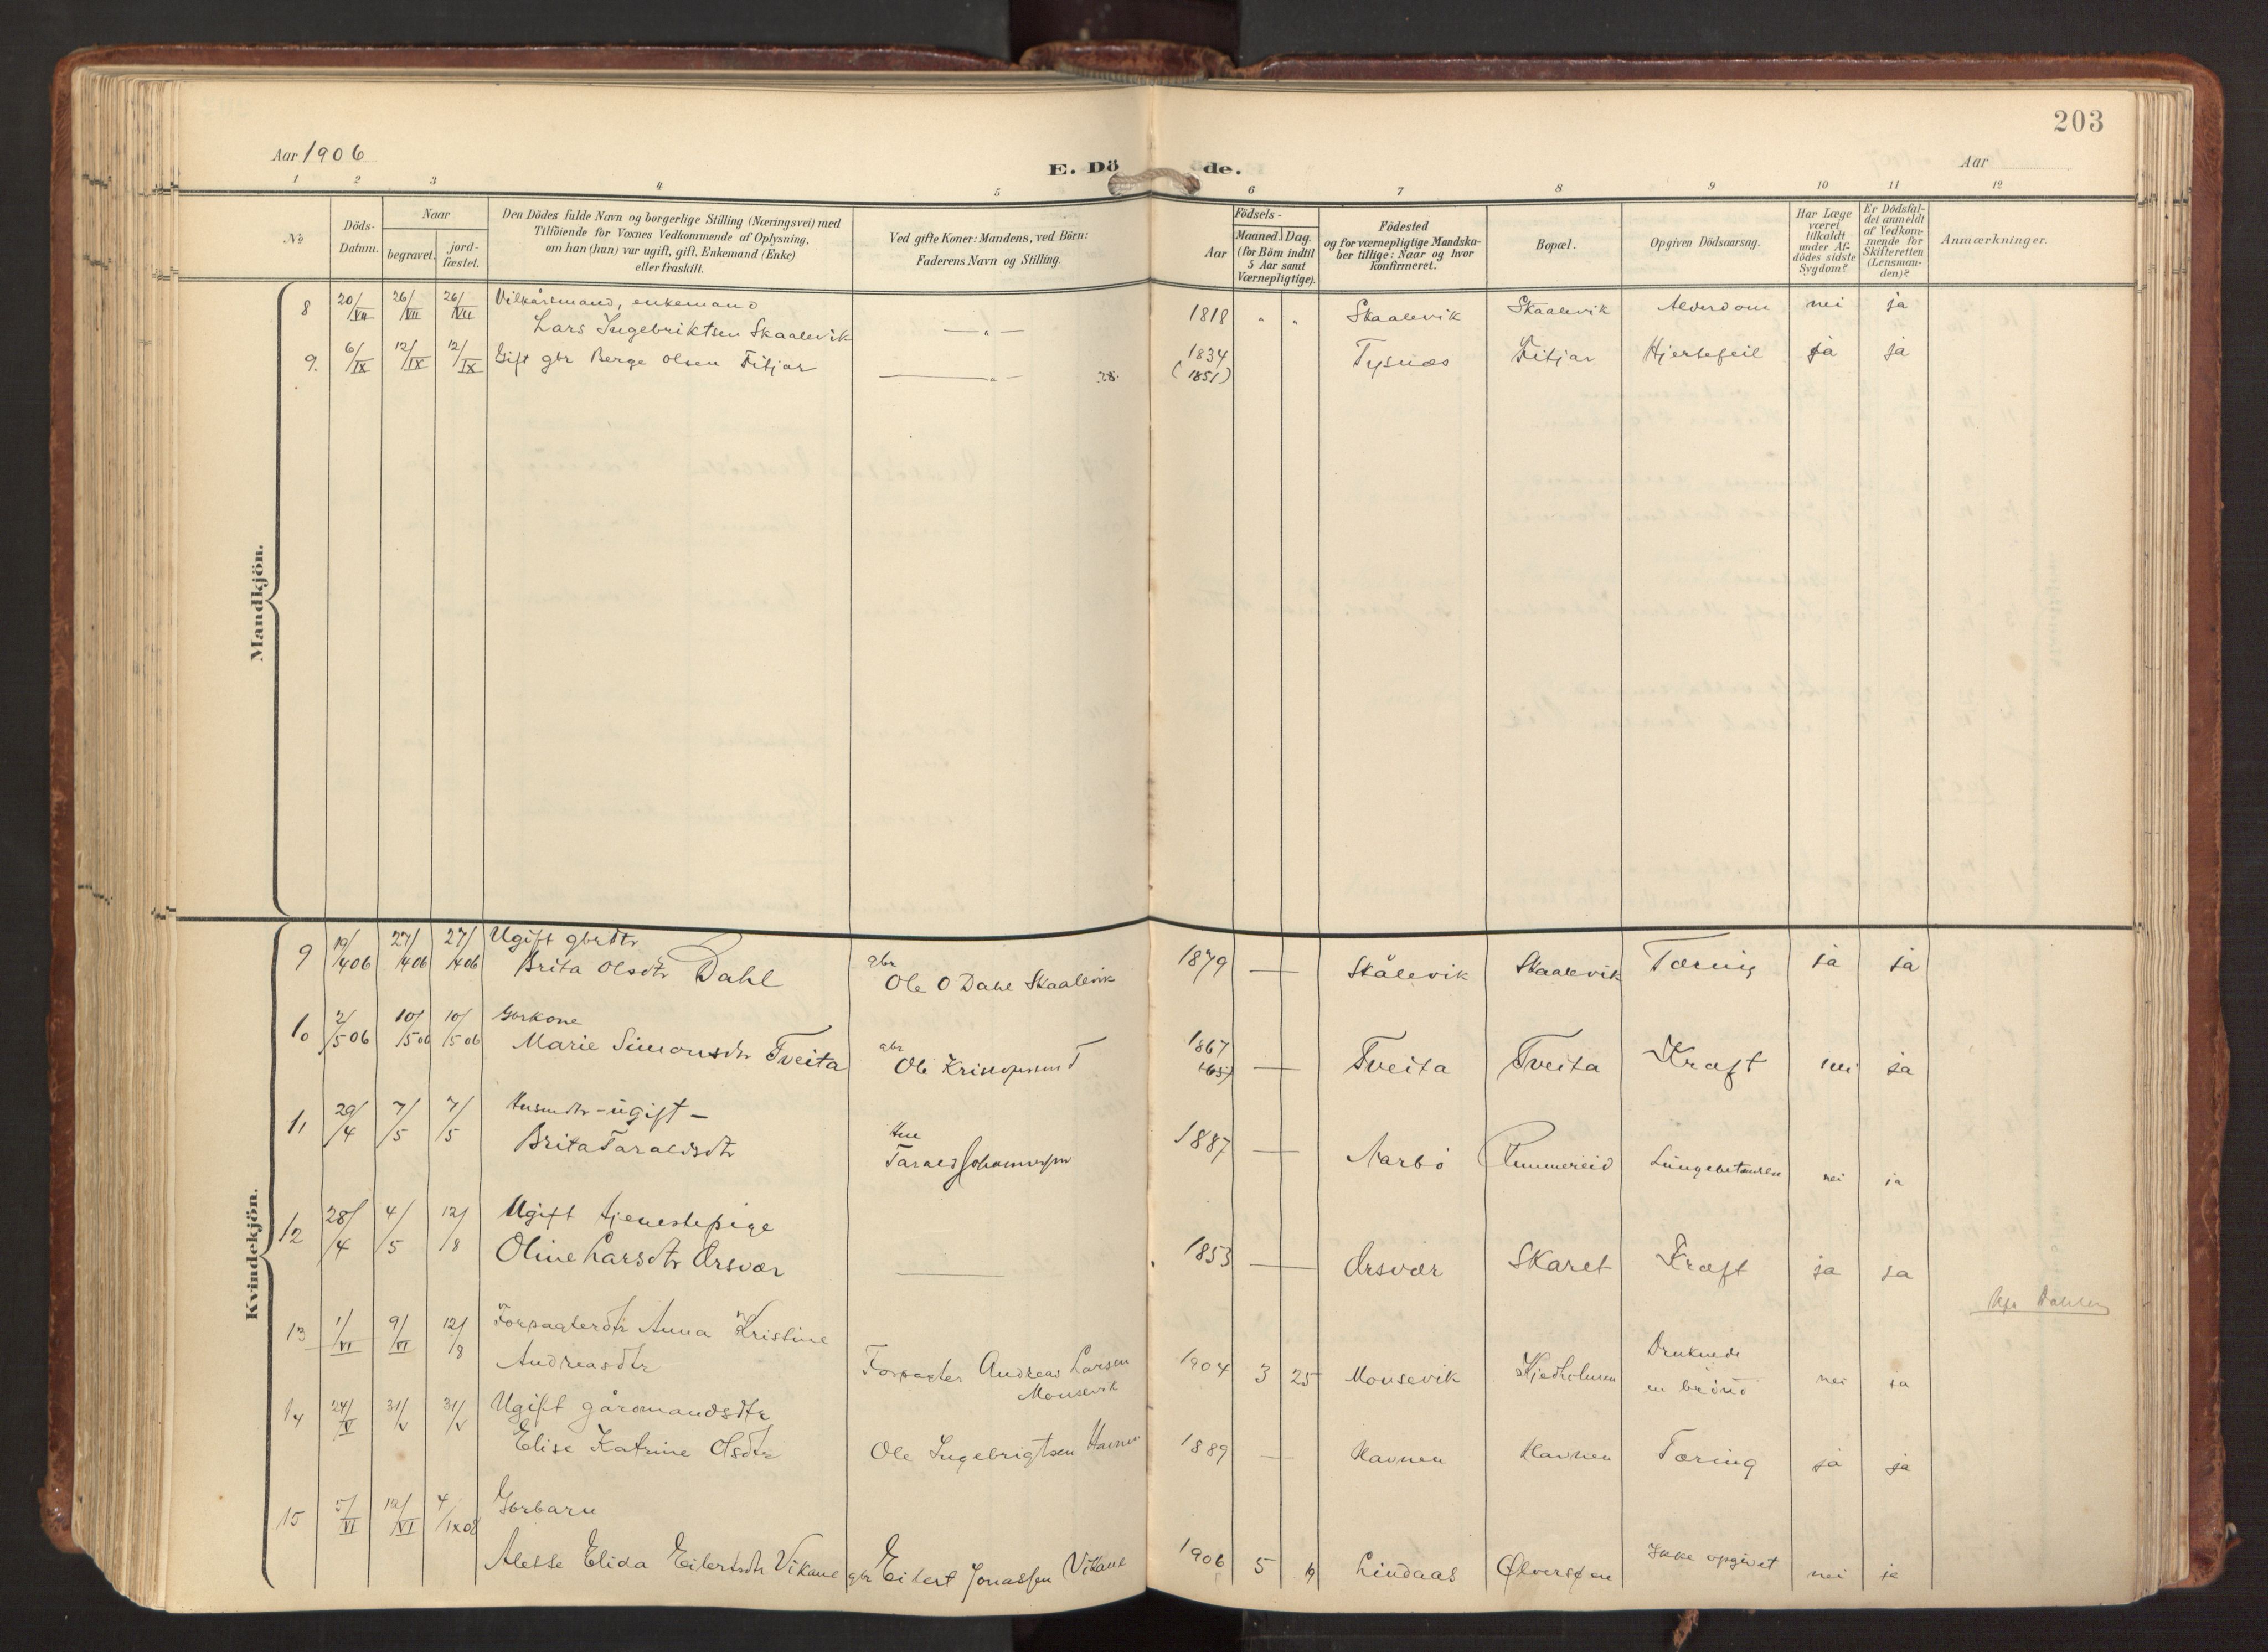 203
Aar 1906
E. Dö de.
Aar
1 2 3 4 5 6 7 8 9 10 11 12
№
Döds-Datum.
Naar
begravet.
jord-fæstet.
Den Dödes fulde Navn og borgerlige Stilling (Næringsvei) med
Tilföiende for Voxnes Vedkommende af Oplysning,
om han (hun) var ugift, gift, Enkemand (Enke)
eller fraskilt.
Ved gifte Koner: Mandens, ved Börn:
Faderens Navn og Stilling.
Födsels-
Aar
Maaned. Dag.
(for Börn indtil
5 Aar samt
Værnepligtige).
Födested
og for værnepligtige Mandska-
ber tillige: Naar og hvor
konfirmeret.
Bopæl.
Opgiven Dödsaarsag.
Har Læge
været
tilkaldt
under Af-
dödes sidste
Sygdom?
Er Dödsfal-
det anmeldt
af Vedkom-
mende for
Skifteretten
(Lensman-
den)?
Anmærkninger.
Mandkjön.
8 20/VII 26/VII 26/VII Vilkårsmand, enkemand
Lars Ingebriktsen Skaalevik — „ — 1818 „ „ Skaalevik Skaalevik Alderdom nei ja
9. 6/IX 12/IX 12/IX Gift gbr Berge Olsen Fitjar — „ — 28. 1834 Tysnæs Fitjar Hjertefeil ja ja
(1851)
Kvindekjön.
9 19/4 06 27/4 06 27/4 06 Ugift gbrdtr
Brita Olsdtr Dahl gbr Ole O Dahl Skaalevik 1879 — Skålevik Skaalevik Tæring ja ja
10 2/5 06 10/5 06 10/5 06 Gbrkone
Marie Simonsdtr Tveita gbr Ole T 1867 — Tveita Tveita Kræft nei ja
(65)
11 29/4 7/5 7/5 Husmdtr - ugift -
Brita Taraldsdtr Hm Tarald Johannessen 1887 — Aarbö Rummereid nei ja
12 28/4 4/5 12/8 Ugift tjenestepige
Oline Larsdtr Örsvær — 1853 — Örsvær Skaret Kræft ja ja
13 1/VI 9/VI 12/8 Forpagterdtr Anna Kristine
Andreasdtr Forpagter Andreas Larsen
Monsevik 1904 3 25 Monsevik Hjedholmen Druknede
en brönd nei ja
14 24/V 31/V 31/V Ugift gårdmandsdtr
Elise Katrine Olsdtr Ole Ingebrigtsen Havnen 1889 — Havnen Havnen Tæring ja ja
15 5/VI 12/VI 4/IX 08 Gbrbarn
Alette Elida Eilertsdtr Vikane gbr Eilert Jonassen Vikane 1906 5 Lindaas Ølversøen Ikke opgivet nei ja